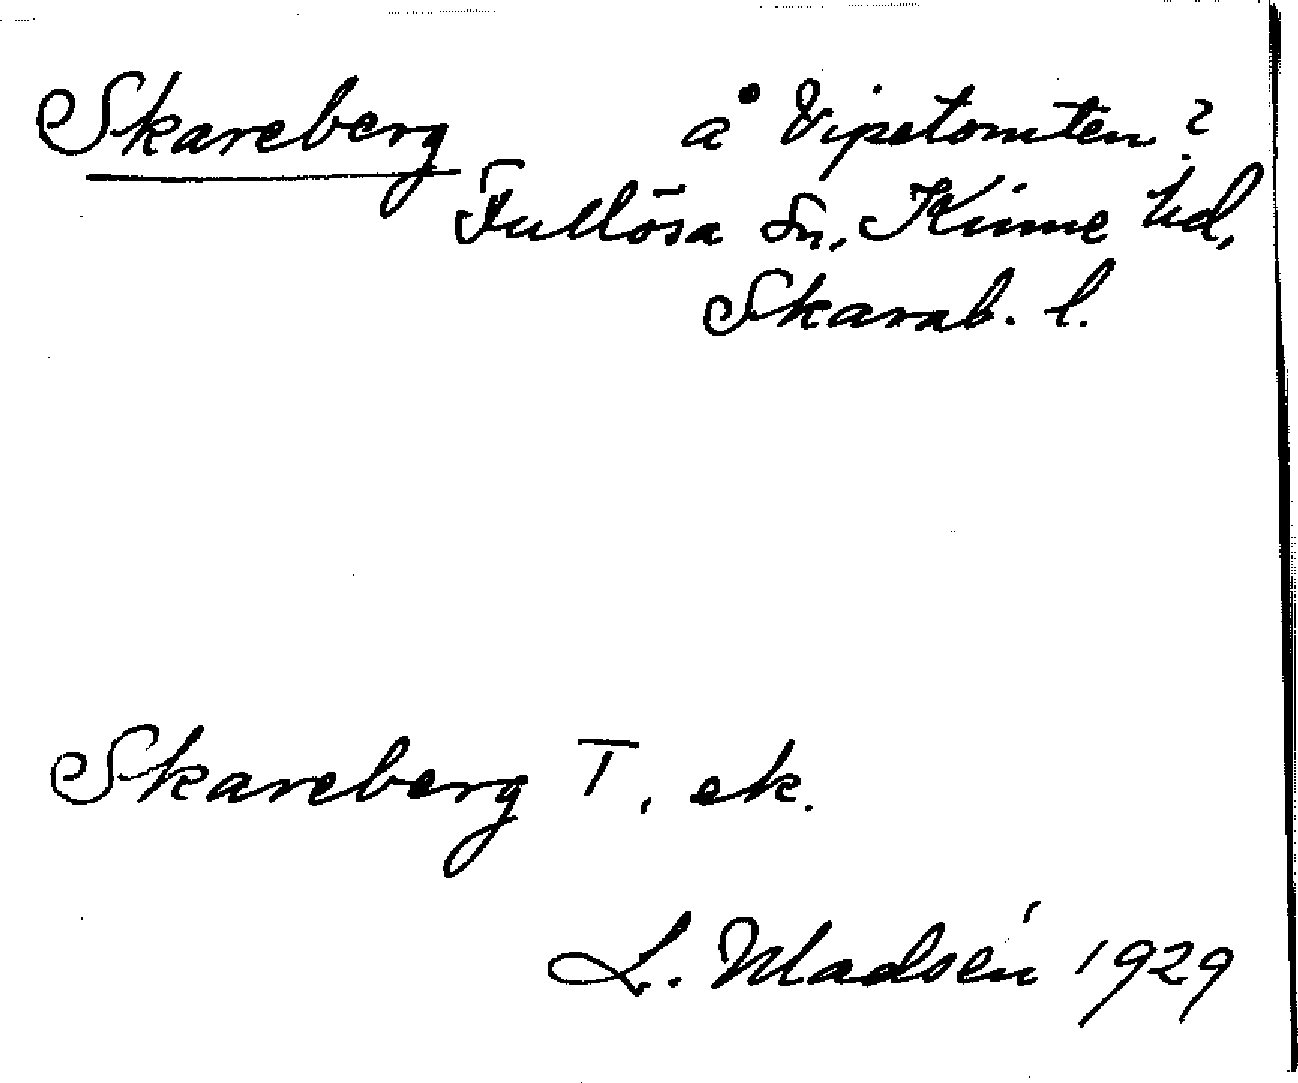 Skareberg å Vipetomten?
Fullösa Sn, Kinne hd,
Skarab. l.
Skareberg T, ek.
L. Madsén 1929